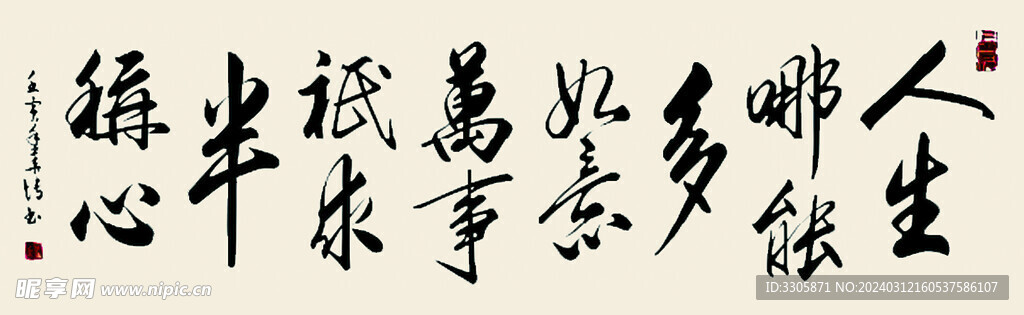 人生
哪能
多
如意
萬事
祇求
半
稱心
昵享网 www.nipic.cn
ID:3305871 NO:20240312160537586107